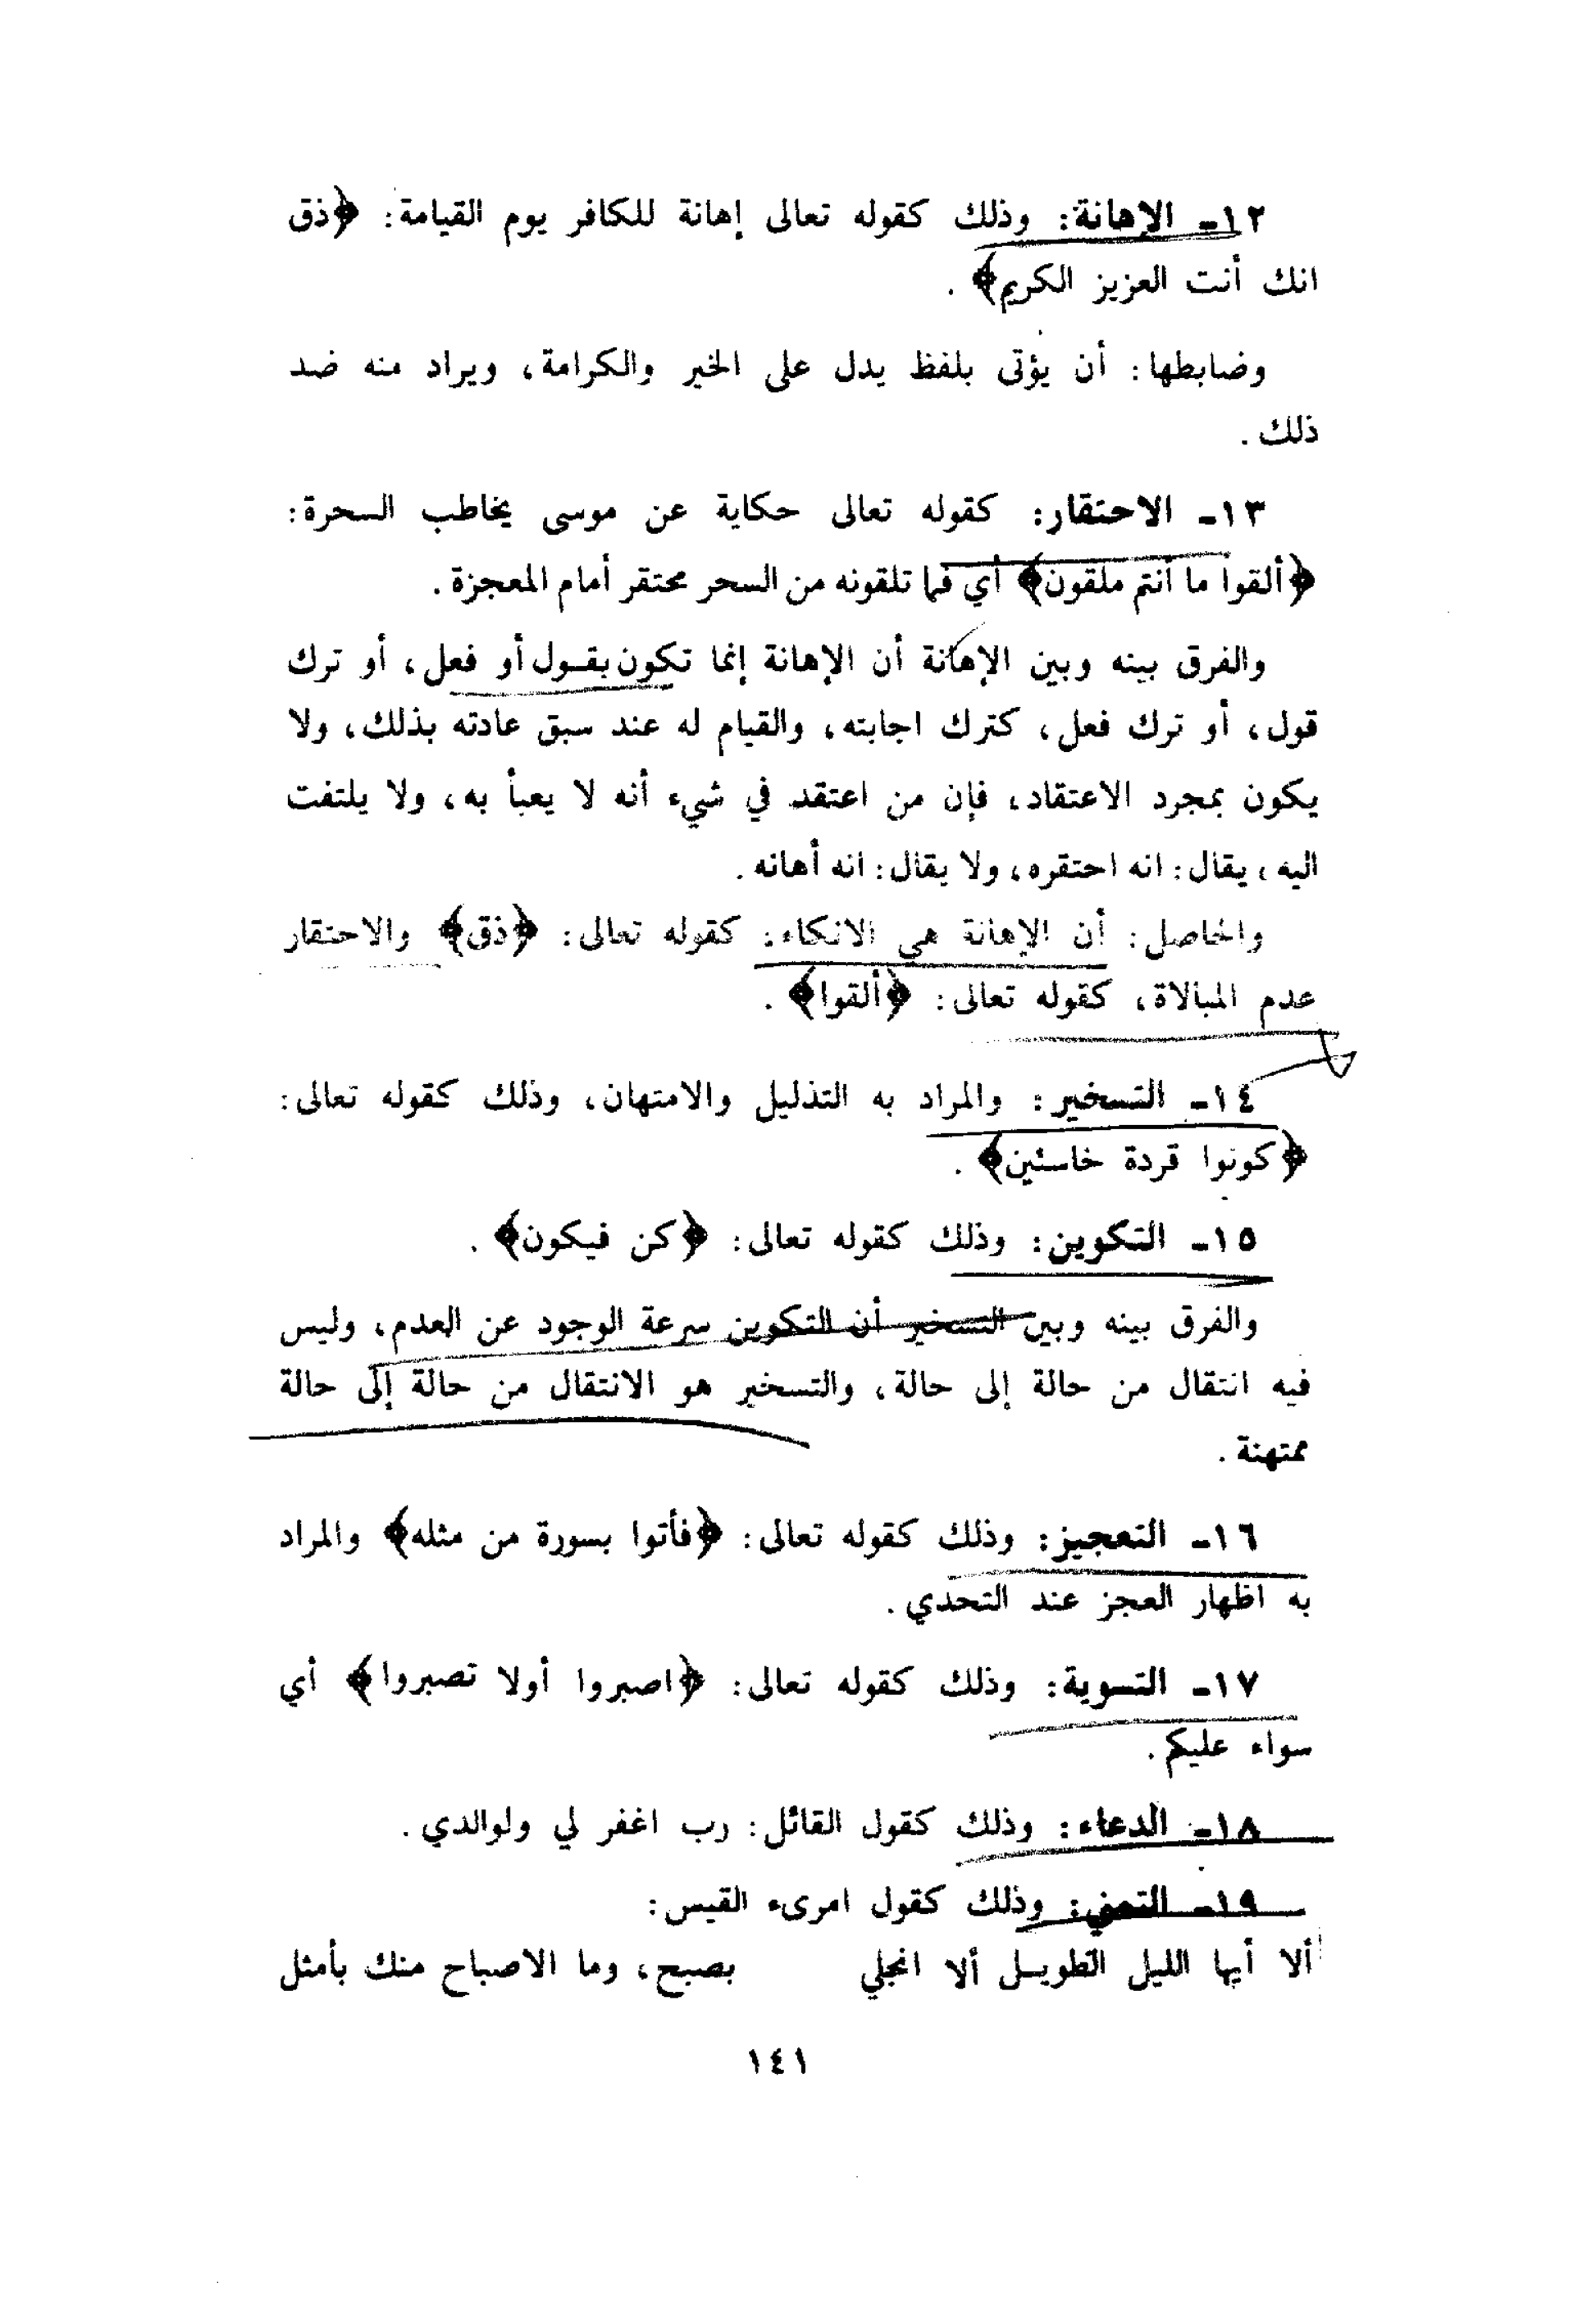 ١٢ـ الإهانة: وذلك كقوله تعالى إهانة للكافر يوم القيامة: ﴿ذق
انك أنت العزيز الكريم﴾ .
وضابطها: أن يؤتى بلفظ يدل على الخير والكرامة، ويراد منه ضد
ذلك .
١٣ـ الاحتقار: كقوله تعالى حكاية عن موسى يخاطب السحرة:
﴿ألقوا ما أنتم ملقون﴾ أي فما تلقونه من السحر محتقر أمام المعجزة .
والفرق بينه وبين الإهانة أن الإهانة إنما تكون بقول أو فعل، أو ترك
قول، أو ترك فعل، كترك اجابته، والقيام له عند سبق عادته بذلك، ولا
يكون بمجرد الاعتقاد، فإن من اعتقد في شيء أنه لا يعبأ به، ولا يلتفت
اليه، يقال: انه احتقره، ولا يقال: انه أهانه .
والحاصل: أن الإهانة هي الانكاء: كقوله تعالى: ﴿ذق﴾ والاحتقار
عدم المبالاة، كقوله تعالى: ﴿ألقوا﴾ .
١٤ـ التسخير: والمراد به التذليل والامتهان، وذلك كقوله تعالى:
﴿كونوا قردة خاسئين﴾ .
١٥ـ التكوين: وذلك كقوله تعالى: ﴿كن فيكون﴾ .
والفرق بينه وبين التسخير أن التكوين سرعة الوجود عن العدم، وليس
فيه انتقال من حالة إلى حالة، والتسخير هو الانتقال من حالة إلى حالة
ممتهنة .
١٦ـ التعجيز: وذلك كقوله تعالى: ﴿فأتوا بسورة من مثله﴾ والمراد
به اظهار العجز عند التحدي .
١٧ـ التسوية: وذلك كقوله تعالى: ﴿اصبروا أولا تصبروا﴾ أي
سواء عليكم .
١٨ـ الدعاء: وذلك كقول القائل: رب اغفر لي ولوالدي .
١٩ـ التمني: وذلك كقول امرىء القيس:
ألا أيها الليل الطويـل ألا انجلي بصبح، وما الاصباح منك بأمثل
١٤١